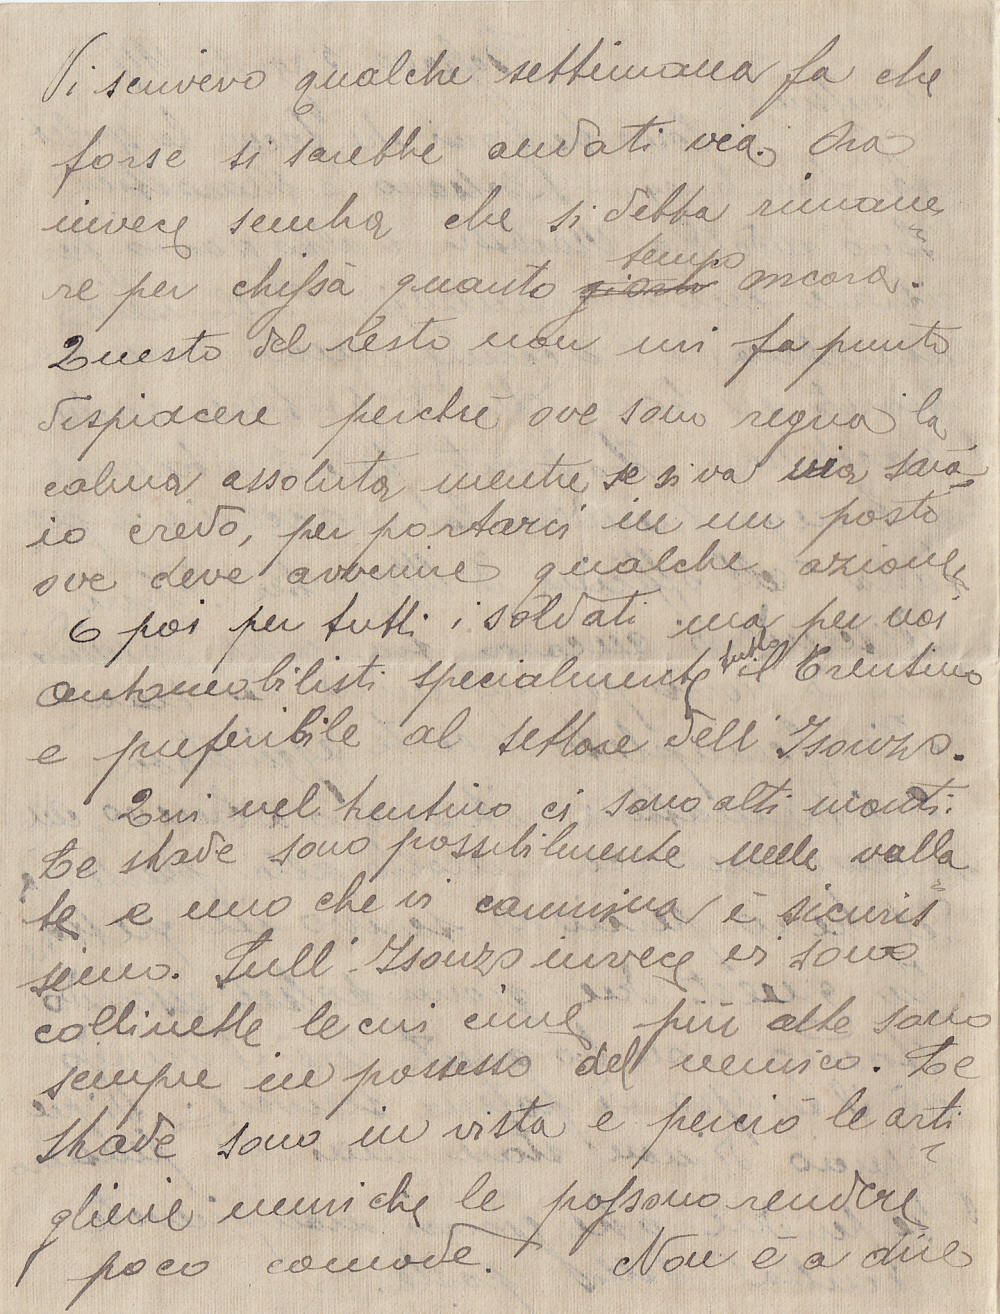 Vi scrivevo qualche settimana fa che
forse si sarebbe andati via. Ora
invece sembra che si debba rimane
re per chissà quanto giorni tempo ancora.
Questo del resto non mi fa punto
dispiacere perchè ove sono regna la
calma assoluta mentre se si va via sarà
io credo, per portarci in un posto
ove deve avvenire qualche azione
E poi per tutti i soldati ma per noi
automobilisti specialmente tutto il Trentino
e preferibile al settore dell'Isonzo.
Qui nel trentino ci sono alti monti.
Le strade sono possibilmente nelle valla
te e uno che vi cammina è sicuris
simo. Sull'Isonzo invece vi sono
collinette le cui cime più alte sono
sempre in possesso del nemico. Le
strade sono in vista e perciò le arti
glierie nemiche le possono rendere
poco comode. Non è a dire